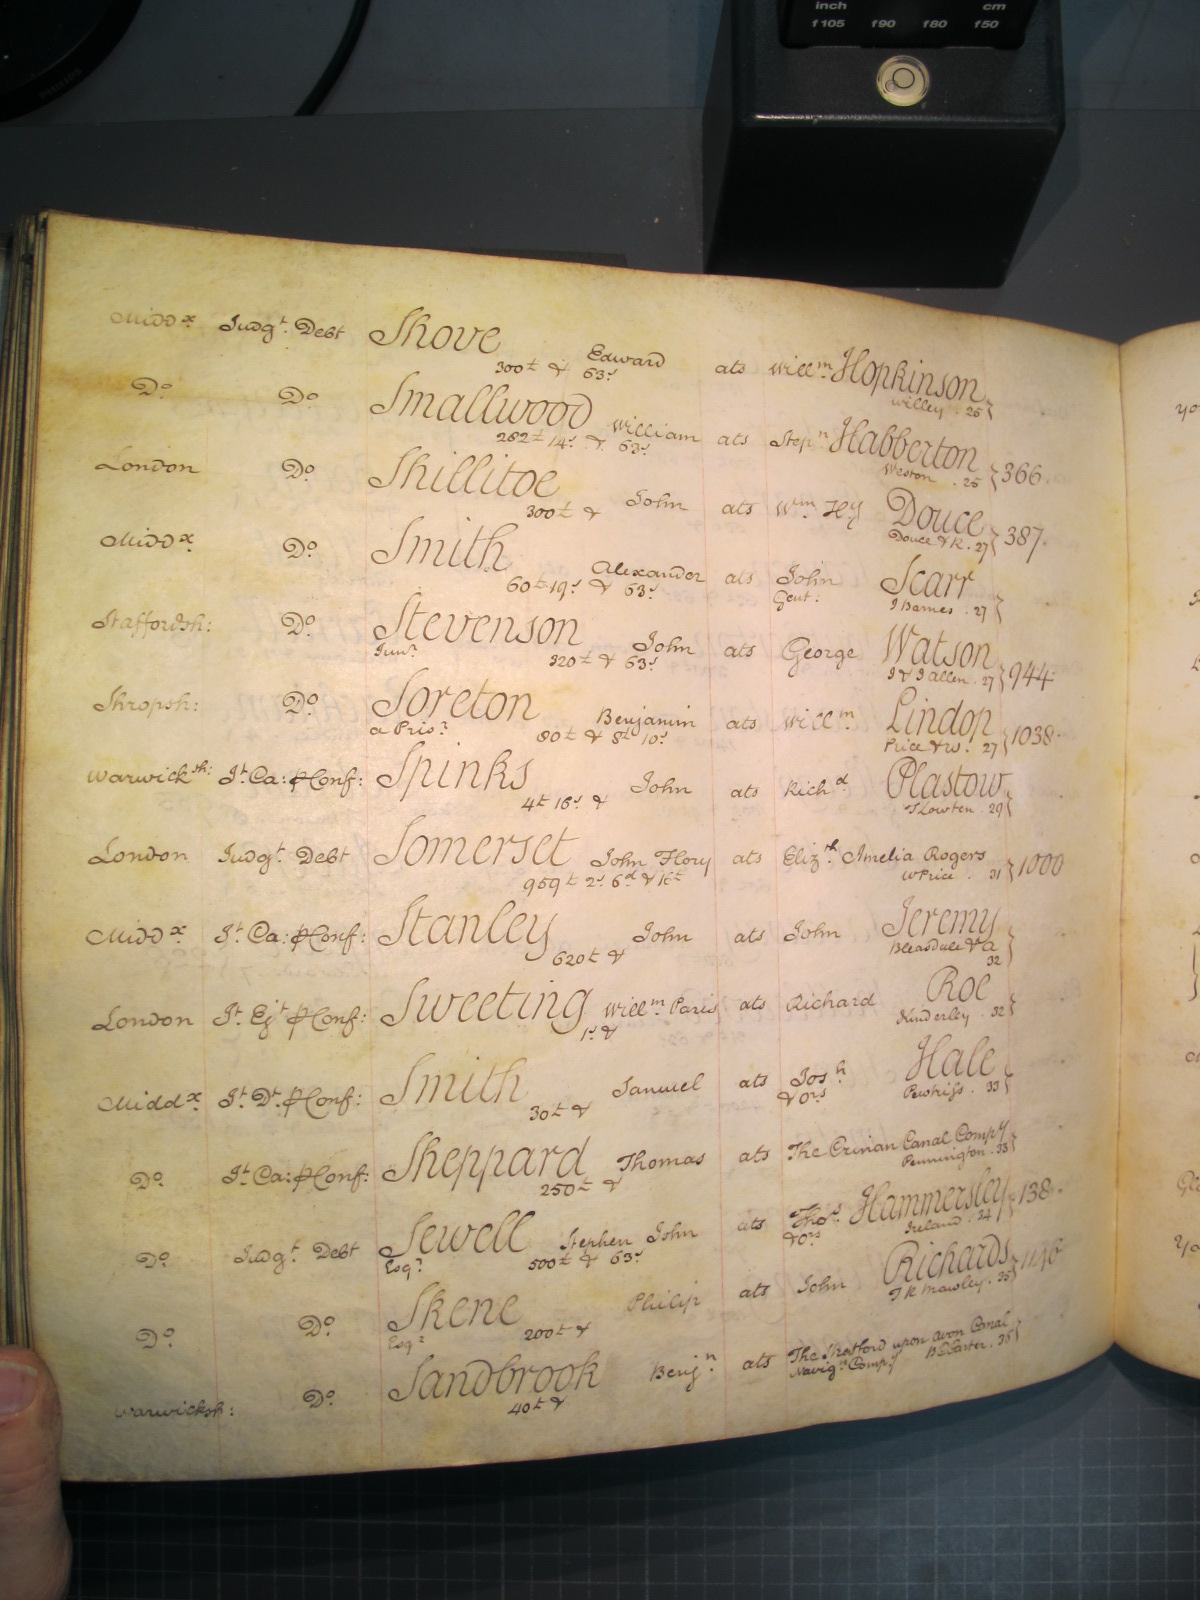 inch cm
f105 f90 f80 f50
PHILIPS
Midd.x Judg.t Debt Shove Edward ats Will.m Hopkinson
300£ & 63s Willey . 26
D.o D.o Smallwood William ats Step.n Habberton 366
262£ 14s & 63s Weston . 25
London D.o Shillitoe John ats W.m Hy Douce 387
300£ & Douce & R . 27
Midd.x D.o Smith Alexander ats John Scarr
60£ 19s & 63s Gent: J Barnes . 27
Staffordsh: D.o Stevenson John ats George Watson 944
Jun.r 320£ & 63s J & J Allen . 27
Shropsh: D.o Soreton Benjamin ats Will.m Lindop 1038
a Pris.r 80£ & 8£ 10s Price & W . 27
Warwick.sh: J.t Ca: P Conf: Spinks John ats Rich.d Plastow
4£ 16s & T Lowten . 29
London Judg.t Debt Somerset John Flory ats Eliz.th Amelia Rogers 1000
959£ 2s 6d & W Price . 31
Midd.x J.t Ca: P Conf: Stanley John ats John Jeremy
620£ & Bleasdale & A
32
London J.t Ej.t P Conf: Sweeting Will.m Paris ats Richard Roe
1s & Kinderley . 32
Midd.x J.t D.t P Conf: Smith Samuel ats Jos.h Hale
30£ & & ors . 33
D.o J.t Ca: P Conf: Sheppard Thomas ats The Crinan Canal Comp.y
250£ & Pennington . 33
D.o Judg.t Debt Sewell Stephen John ats Tho.s Hammersley 138
Esq.r 500£ & 63s & ors Ireland . 24
D.o D.o Skene Philip ats John Richards
Esq.r 200£ & T R Mawley . 35
Warwicksh: D.o Sandbrook Benj.n ats The Stratford upon Avon Canal
40£ & Navig.n Comp.y B C Carter . 36